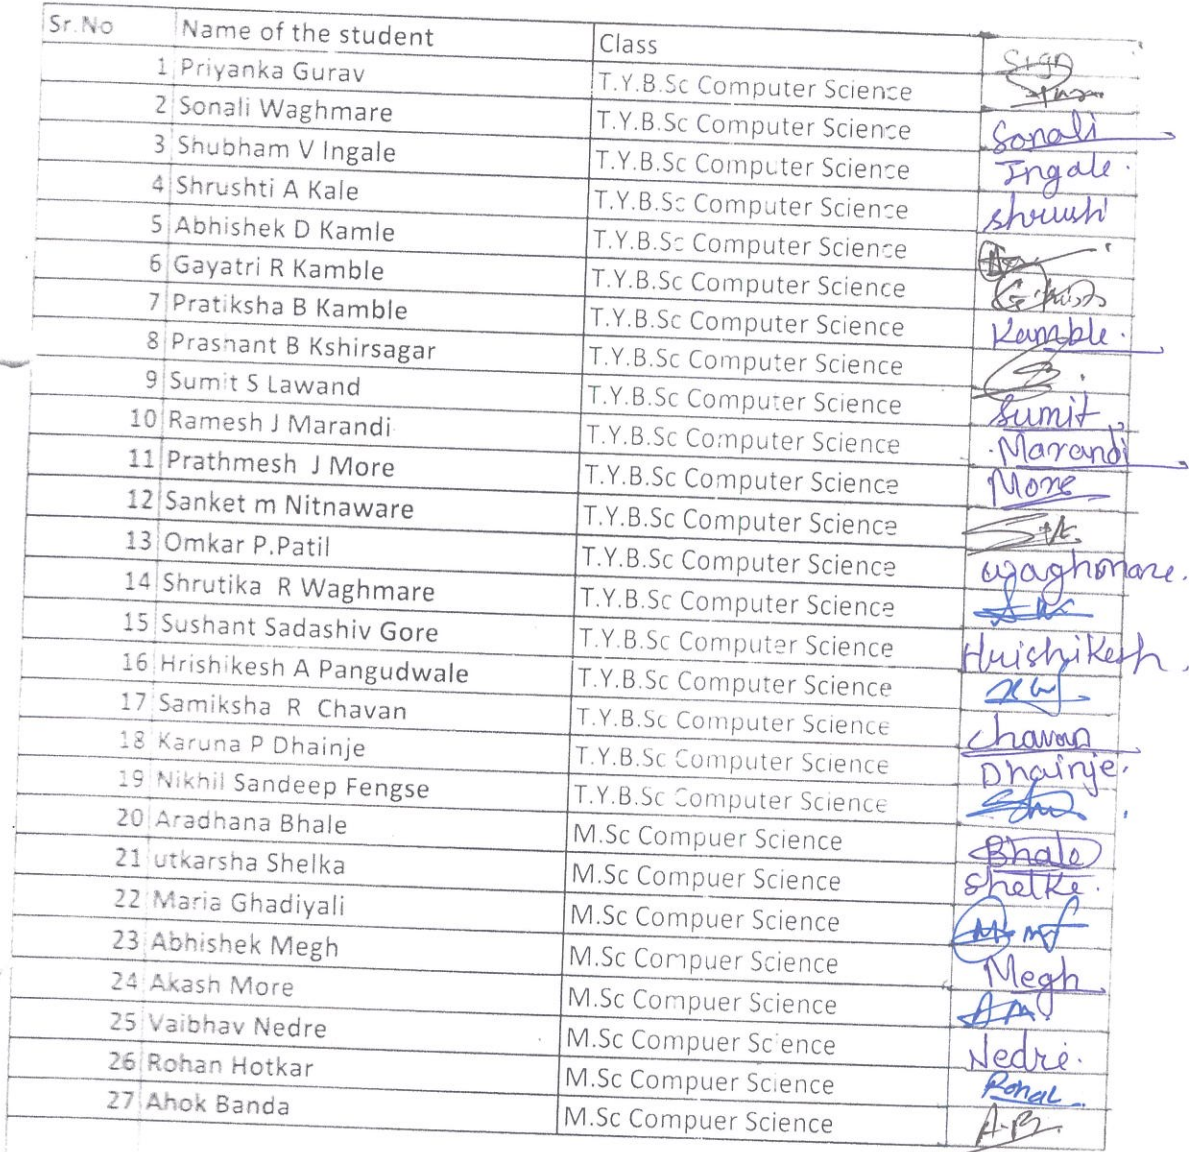 Sr.No Name of the student Class Sign
1 Priyanka Gurav T.Y.B.Sc Computer Science
2 Sonali Waghmare T.Y.B.Sc Computer Science Sonali
3 Shubham V Ingale T.Y.B.Sc Computer Science Ingale.
4 Shrushti A Kale T.Y.B.Sc Computer Science shrushti
5 Abhishek D Kamle T.Y.B.Sc Computer Science
6 Gayatri R Kamble T.Y.B.Sc Computer Science
7 Pratiksha B Kamble T.Y.B.Sc Computer Science Kamble.
8 Prasnant B Kshirsagar T.Y.B.Sc Computer Science
9 Sumit S Lawand T.Y.B.Sc Computer Science Sumit
10 Ramesh J Marandi T.Y.B.Sc Computer Science Marandi
11 Prathmesh J More T.Y.B.Sc Computer Science More
12 Sanket m Nitnaware T.Y.B.Sc Computer Science
13 Omkar P.Patil T.Y.B.Sc Computer Science waghmare.
14 Shrutika R Waghmare T.Y.B.Sc Computer Science
15 Sushant Sadashiv Gore T.Y.B.Sc Computer Science Hrishikesh.
16 Hrishikesh A Pangudwale T.Y.B.Sc Computer Science
17 Samiksha R Chavan T.Y.B.Sc Computer Science Chavan
18 Karuna P Dhainje T.Y.B.Sc Computer Science Dhainje.
19 Nikhil Sandeep Fengse T.Y.B.Sc Computer Science
20 Aradhana Bhale M.Sc Compuer Science Bhale
21 utkarsha Shelka M.Sc Compuer Science Shelke.
22 Maria Ghadiyali M.Sc Compuer Science
23 Abhishek Megh M.Sc Compuer Science Megh
24 Akash More M.Sc Compuer Science AM.
25 Vaibhav Nedre M.Sc Compuer Science Nedre.
26 Rohan Hotkar M.Sc Compuer Science Rohan
27 Ahok Banda M.Sc Compuer Science A.B.